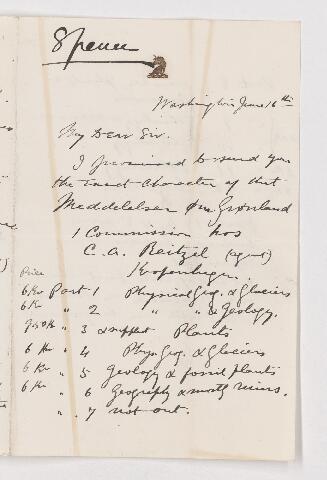 Spencer
Washington June 16th
My Dear Sir.
I promised to send you
the exact character of that
Meddelelser om Grønland
1 Commission hos
C. A. Reitzel (agent)
Kopenhagen.
Price
6 Kr Part 1 Physical Geog. & Glaciers
6 Kr " 2 " " & Geology.
" 3 & supplet Plants
6 Kr " 4 Phys. Geog. & Glaciers
6 Kr " 5 Geology & fossil plants
6 Kr " 6 Geography & mostly
" 7 not out.